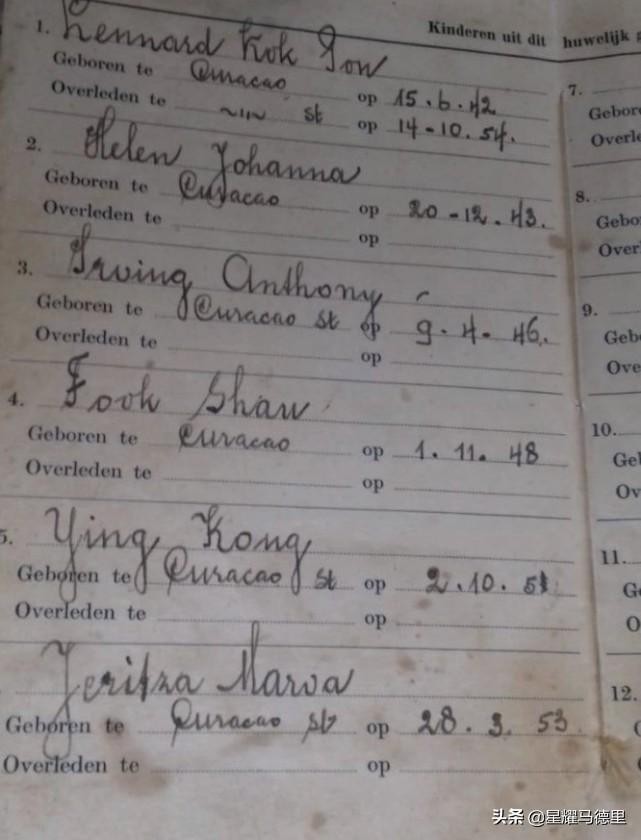 Kinderen uit dit huwelijk g
1. Lennard Kok Sow
Geboren te Curacao op 15.6.42
Overleden te st op 14-10.54.
2. Helen Johanna
Geboren te Curacao op 20-12.43.
Overleden te op
3. Irving Anthony
Geboren te Curacao st op 9.4-46.
Overleden te op
4. Fook Shaw
Geboren te Curacao op 1.11.48
Overleden te op
5. Ying Kong
Geboren te Curacao st op 2.10.51
Overleden te op
Jeritza Marva
Geboren te Curacao st op 28.3.53
Overleden te op
7.
Gebor
Overle
8.
Gebo
Over
9.
Geb
Ove
10.
Gel
Ov
11.
Ge
O
12.
头条 @星耀马德里